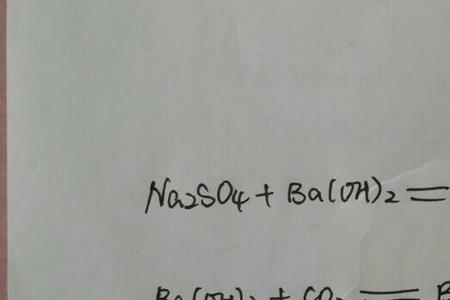 Na2SO4 + Ba(OH)2 =
Ba(OH)2 + CO2 = B